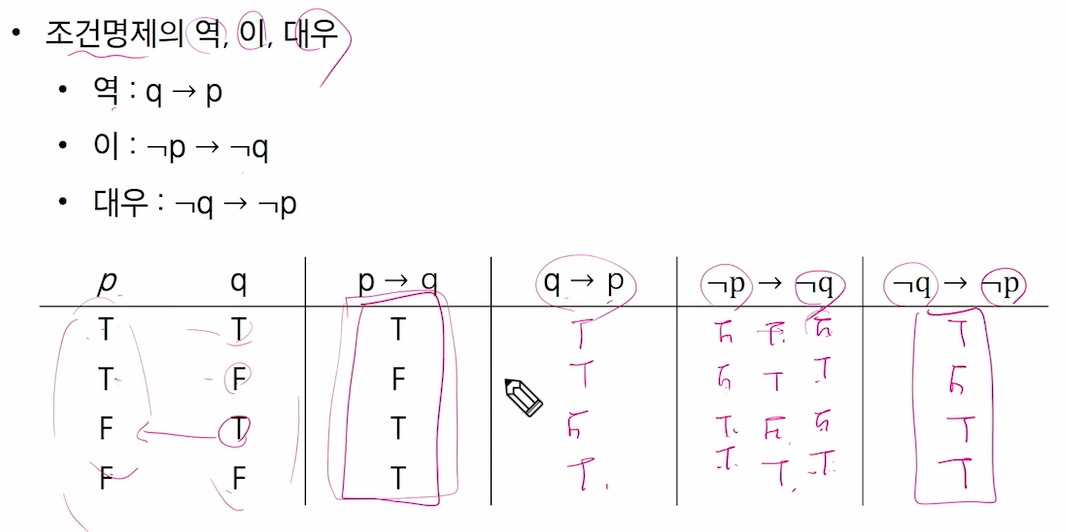 • 조건명제의 역, 이, 대우
• 역 : q → p
• 이 : ¬p → ¬q
• 대우 : ¬q → ¬p
p q p → q q → p ¬p → ¬q ¬q → ¬p
T T T T F F T
T F F T F T T F
F T T F T F F T
F F T T T T T T